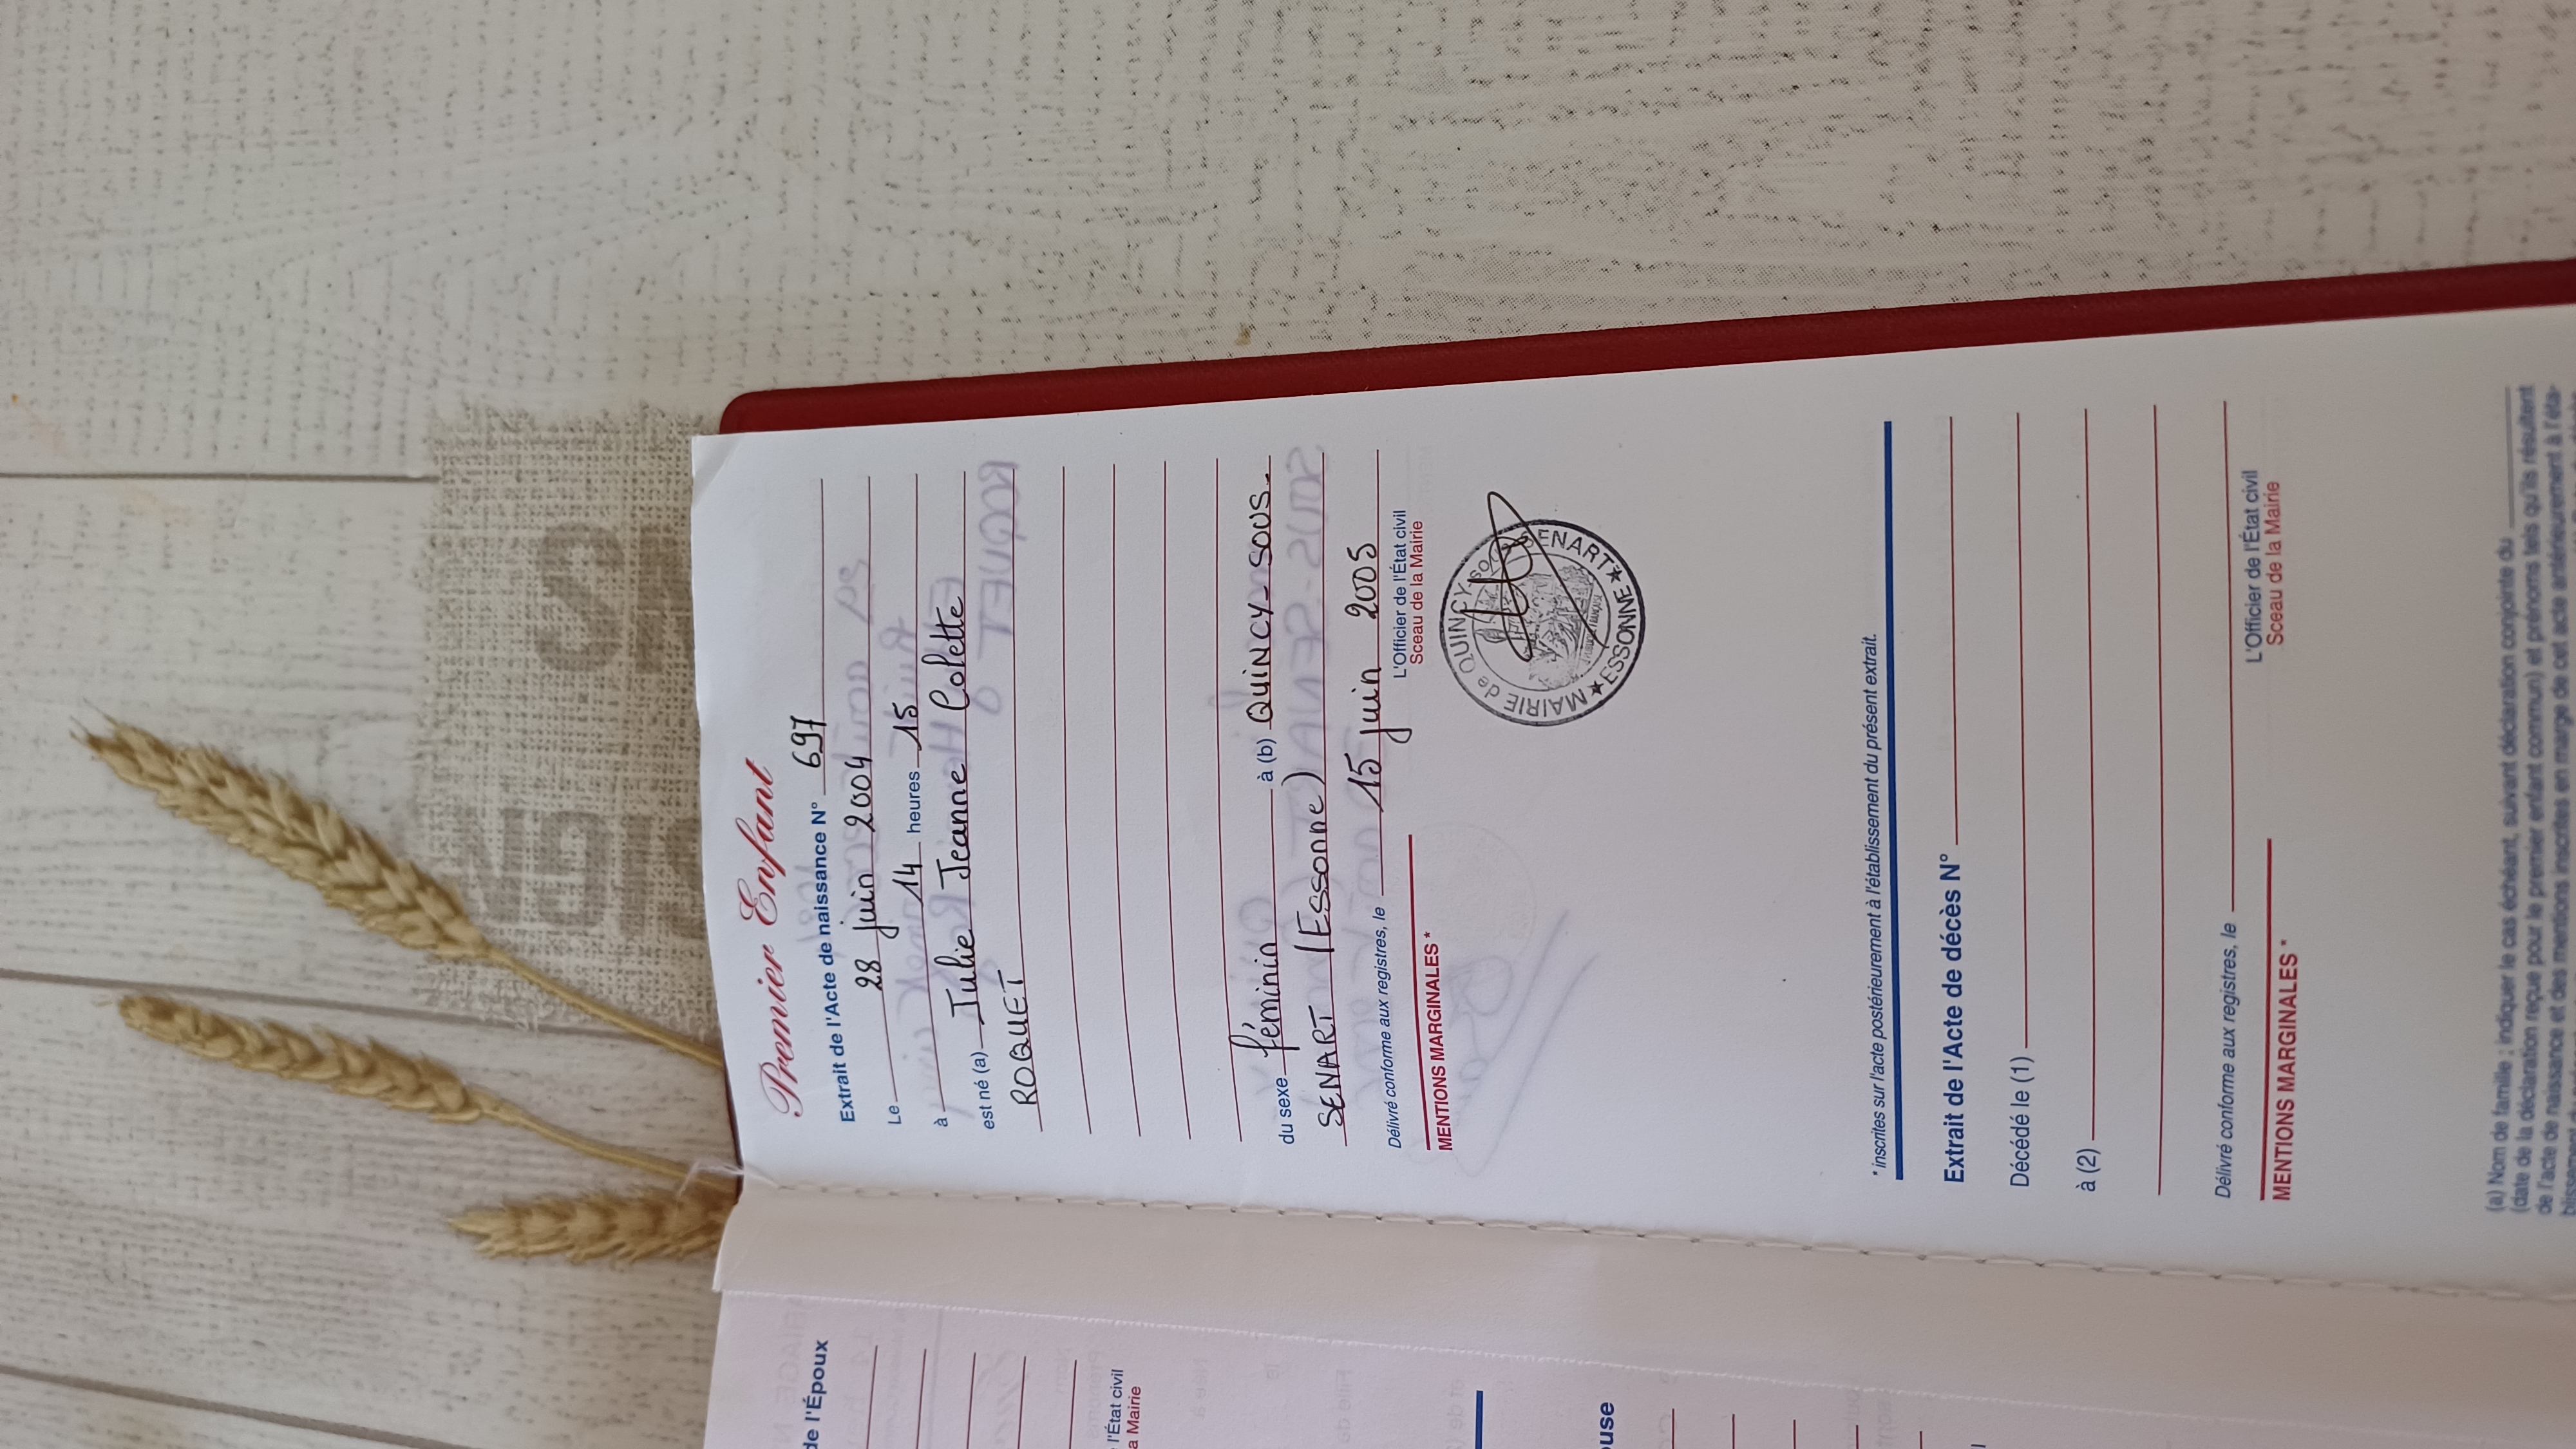 Premier Enfant
Extrait de l'Acte de naissance N° 697
Le 28 juin 2004
à 14 heures 15
est né (a) Julie Jeanne Colette
ROQUET
du sexe féminin à (b) QUINCY-SOUS-
SENART (Essonne)
Délivré conforme aux registres, le 15 juin 2005
L'Officier de l'État civil
Sceau de la Mairie
MENTIONS MARGINALES *
MAIRIE de QUINCY-SOUS-SENART
★ ESSONNE ★
* inscrites sur l'acte postérieurement à l'établissement du présent extrait.
Extrait de l'Acte de décès N°
Décédé le (1)
à (2)
Délivré conforme aux registres, le
L'Officier de l'État civil
Sceau de la Mairie
MENTIONS MARGINALES *
(a) Nom de famille ; indiquer le cas échéant, suivant déclaration conjointe du
(date de la déclaration reçue pour le premier enfant commun) et prénoms tels qu'ils résultent
de l'acte de naissance et des mentions inscrites en marge de cet acte antérieurement à l'éta-
de l'Époux
l'État civil
a Mairie
ouse